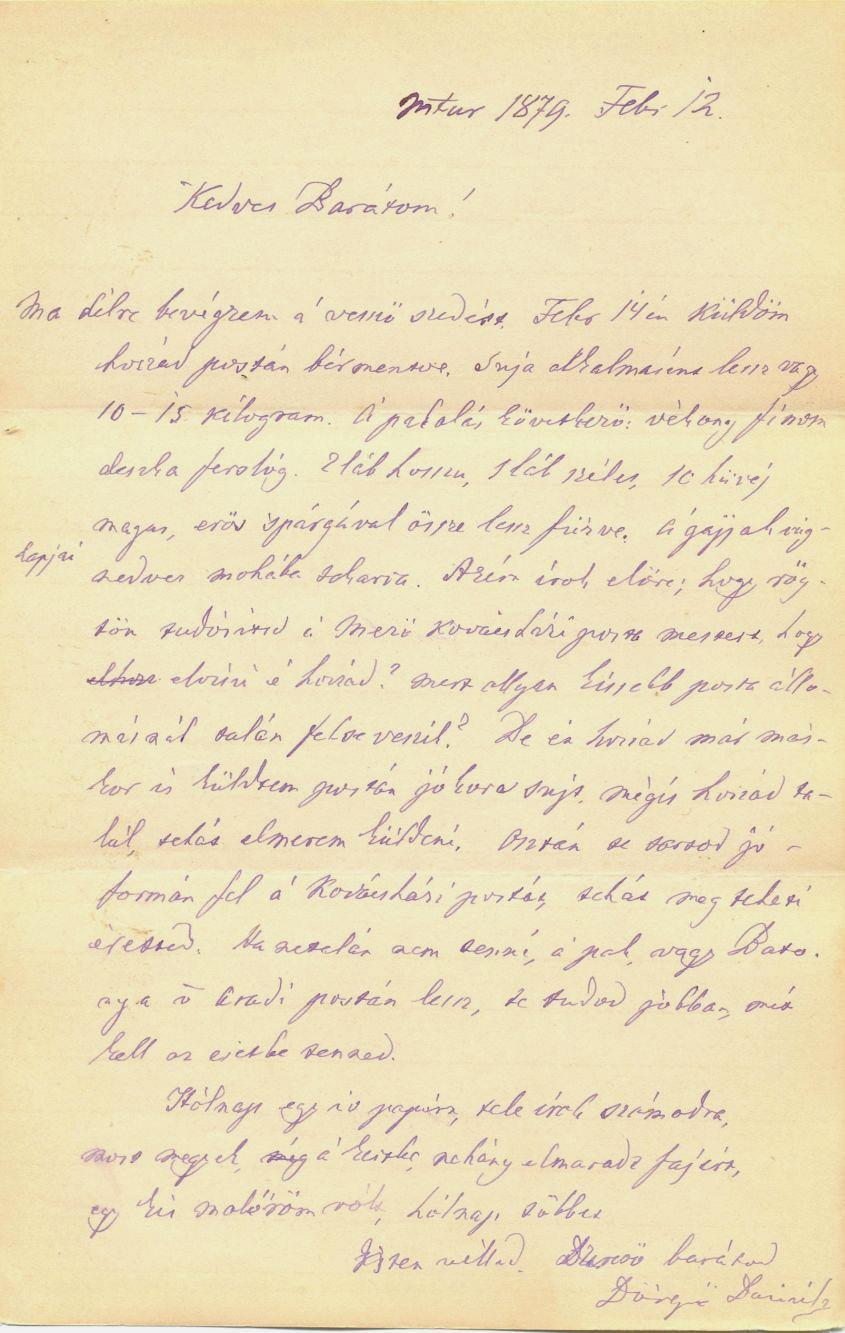 Mtur 1879. Febr 12.
Kedves Barátom!
Ma délre bevégzem á vessző szedést. Febr 14én küldöm
hozzád postán bérmentve. Suja alkalmasént lesz vagy
10-15 kilogram. Á pakolás következő: vékony finom
deszka ferslóg. 2 láb hosszu, 1 láb széles, 10 hüvej
magas, erős spárgával össze lesz füzve. Á gajjak vég-
lapjai
nedves mohába takarva. Azért írok előre; hogy rög-
tön tudósítsd á Mező Kovácsházi posta mestert, hogy
elviszi é hozzád? mert ollyan kissebb posta állo-
másnál talán felse veszik? De én hozzád már más-
kor is küldtem postán jókora sujt, mégis hozzád ta-
lált, tehát elmerem küldeni. Osztán te tartod jó-
formán fel á Kovácsházi postát, tehát meg teheti
éretted. Ha netalán nem tenné, á pak, vagy Batto-
nya v Aradi postán lesz, te tudod jobban, mit
kell az esetbe tenned.
Hólnap egy ív papírt, tele írok számodra,
most megyek, még á kertbe, nehány elmaradt fajért,
egy kis malőröm vólt, hólnap többet
Isten véled. barátod
Dörgő Dániel